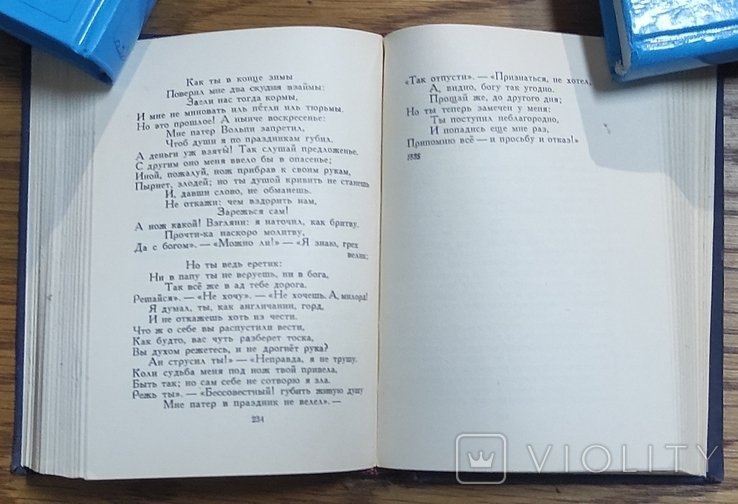 Как ты в конце зимы
Поверил мне два скудия взаймы:
Заели нас тогда кормы,
И мне не миновать иль петли иль тюрьмы.
Но это прошлое! А нынче воскресенье:
Мне патер Вольпи запретил,
Чтоб души я по праздникам губил.
А деньги уж взяты! Так слушай предложенье.
С другим оно меня ввело бы в опасенье;
Иной, пожалуй, нож прибрав к своим рукам,
Пырнет, злодей; но ты душой кривить не станешь
И, давши слово, не обманешь.
Не откажи: чем вздорить нам,
Зарежься сам!
А нож какой! Взгляни: я наточил, как бритву.
Прочти-ка наскоро молитву,
Да с богом». — «Можно ли!» — «Я знаю, грех
велик;
Но ты ведь еретик:
Ни в папу ты не веруешь, ни в бога,
Так всё же в ад тебе дорога.
Решайся». — «Не хочу». — «Не хочешь. А, милорд!
Я думал, ты, как англичанин, горд,
И не откажешь хоть из чести.
Что ж о себе вы распустили вести,
Как будто, вас чуть разберет тоска,
Вы духом режетесь, и не дрогнёт рука?
Ан струсил ты!» — «Неправда, я не трушу.
Коли судьба меня под нож твой привела,
Быть так; но сам себе не сотворю я зла.
Режь ты». — «Бессовестный! губить живую душу
Мне патер в праздник не велел». —
234
«Так отпусти». — «Признаться, не хотел,
А, видно, богу так угодно.
Прощай же, до другого дня;
Но ты теперь замечен у меня:
Ты поступил неблагородно,
И попадись еще мне раз,
Припомню всё — и просьбу и отказ!»
1835
VIOLITY